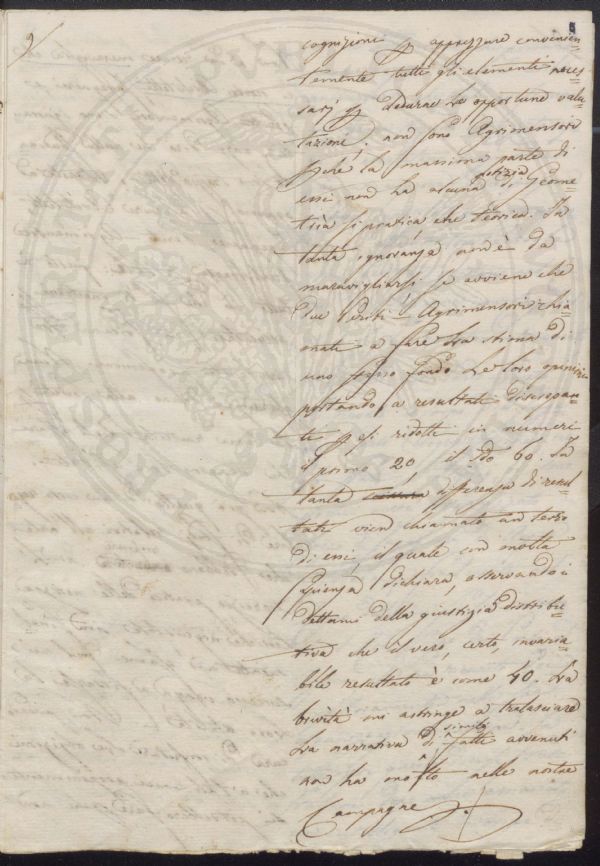 cognizioni p apprezzare convenien=
temente tutti gli elementi neces=
sarj p dedurne le opportune valu=
tazioni. non sono Agrimensori
p che la massima parte di
essi non ha alcuna notizia di Geome=
tria sì pratica, che teorica. In
tanta ignoranza non è da
maravigliarsi se avviene che
due Periti Agrimensori chia=
mati a fare la stima di
uno stesso fondo le loro opinioni
portando a resultati discrepan=
ti p es. ridotti in numeri
il primo 20, il 2do 60. In
tanta differenza di resul=
tati vien chiamato un terzo
di essi, il quale con molta
sapienza dichiara, osservando i
dettami della giustizia distribu=
tiva che il vero, certo, invaria=
bile resultato è come 40. La
brevità mi astringe a tralasciare
la narrativa di simili fatti avvenuti
non ha molto nelle nostre
Campagne